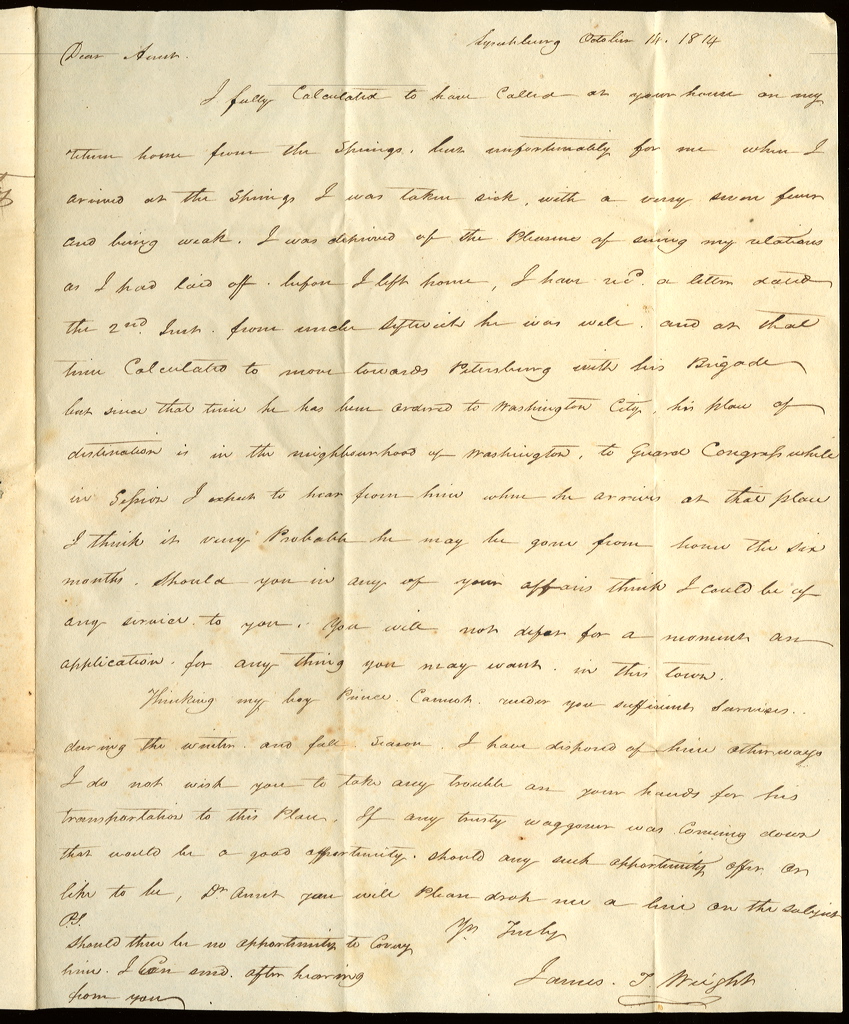 Lynchburg October 14. 1814
Dear Aunt.
I fully Calculated to have Called at your house on my
return home from the Springs. but unfortunately for me when I
arrived at the Springs I was taken sick, with a very severe fever
and being weak. I was deprived of the Pleasure of seeing my relations
as I had laid off. before I left home, I have recd. a letter dated
the 2nd Inst. from uncle he was well. and at that
time Calculated to move towards Petersburg with his Brigade
but since that time he has been ordered to Washington City, his place of
distination is in the neighbourhood of Washington, to Guard Congress while
in Session I expect to hear from him when he arrives at that place
I think it very Probable he may be gone from home the six
months. Should you in any of your affairs think I could be of
any service to you. You will not defer for a moment an
application. for any thing you may want. in this town.
Thinking my boy Prince Cannot. render you sufficient Services..
during the winter and fall Season. I have disposed of him otherways
I do not wish you to take any trouble on your hands for his
transportation to this Place. If any trusty waggoner was Coming down
that would be a good opportunity. should any such opportunity offer or
like to be, Dr. Aunt you will Please drop me a line on the subject
Yrs Truly
James. T Wright
P.S.
should there be no opportunity to Convey
him. I Can send. after hearing
from you